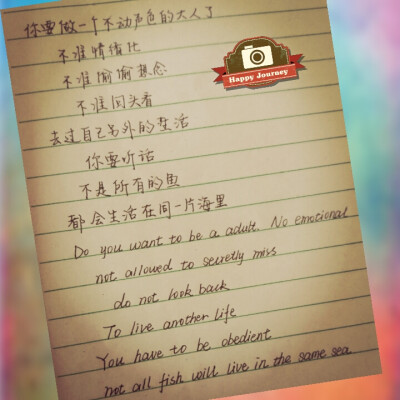 你要做一个不动声色的大人了
不准情绪化
不准偷偷想念
不准回头看
去过自己另外的生活
你要听话
不是所有的鱼
都会生活在同一片海里
Do you want to be a adult. No emotional
not allowed to secretly miss
do not look back
To live another life
You have to be obedient
not all fish will live in the same sea
Happy Journey